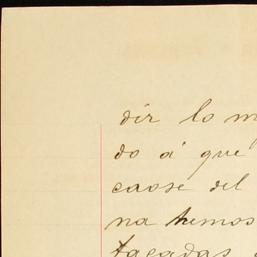 dir lo m
do á que
caose del
na hemos
tacadas